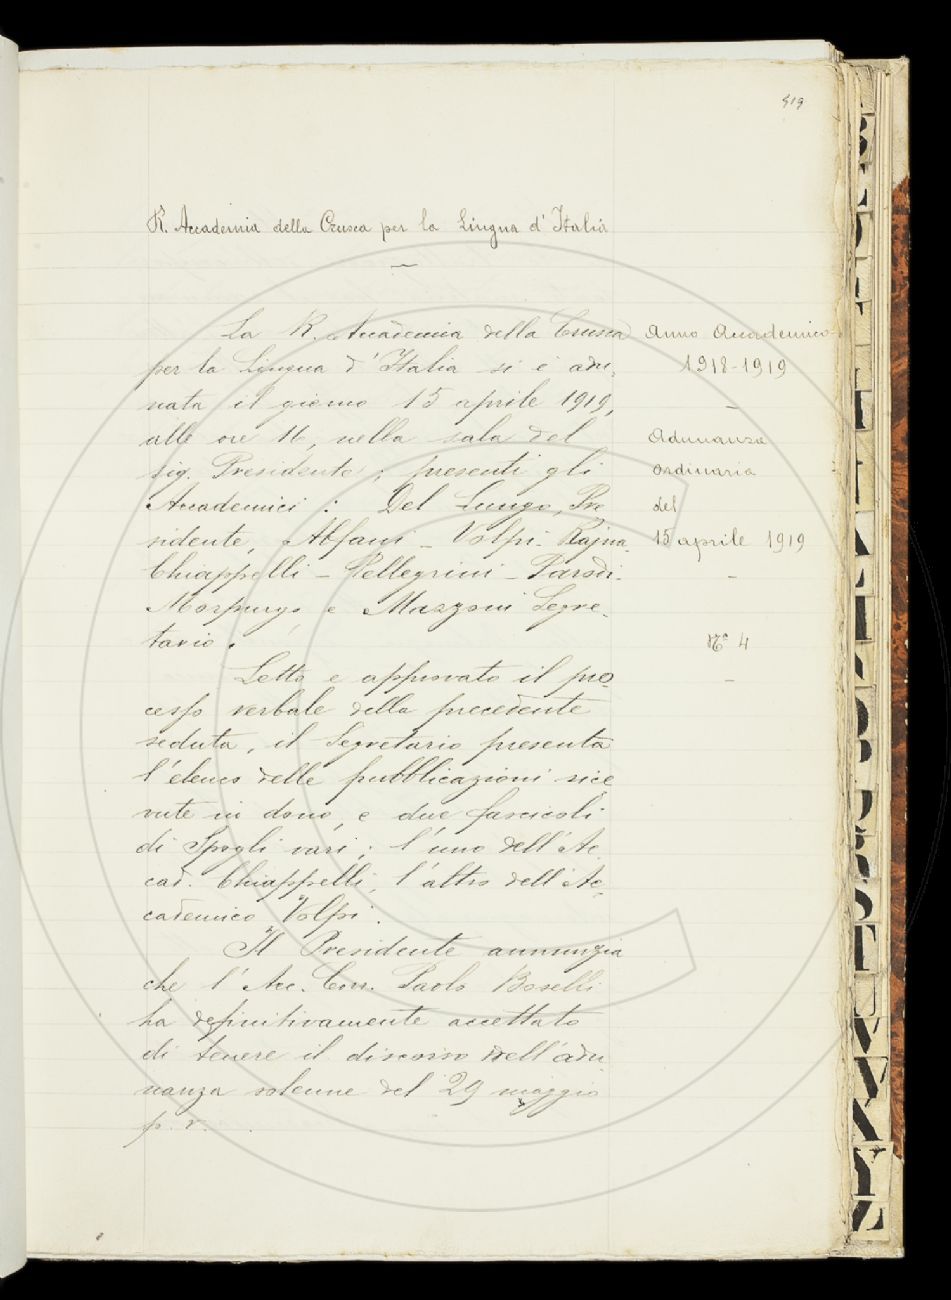 519
R. Accademia della Crusca per la Lingua d'Italia
La R. Accademia della Crusca
per la Lingua d'Italia si è adu-
nata il giorno 15 aprile 1919,
alle ore 16, nella sala del
sig. Presidente; presenti gli
Accademici: Del Lungo, Pre
sidente, Alfani - Volpi - Rajna
Chiappelli - Pellegrini - Parodi -
Morpurgo e Mazzoni Segre-
tario.
Letto e approvato il pro
cesso verbale della precedente
seduta, il Segretario presenta
l'elenco delle pubblicazioni rice
vute in dono, e due fascicoli
di Spogli vari; l'uno dell'Ac
cad. Chiappelli, l'altro dell'Ac-
cademico Volpi.
Il Presidente annunzia
che l'Acc. Corr. Paolo Boselli
ha definitivamente accettato
di tenere il discorso nell'adu
nanza solenne del 29 maggio
p. v.
Anno Accademico
1918-1919
-
Adunanza
ordinaria
del
15 aprile 1919
-
N.° 4
-
B
V
V
X
Y
Z